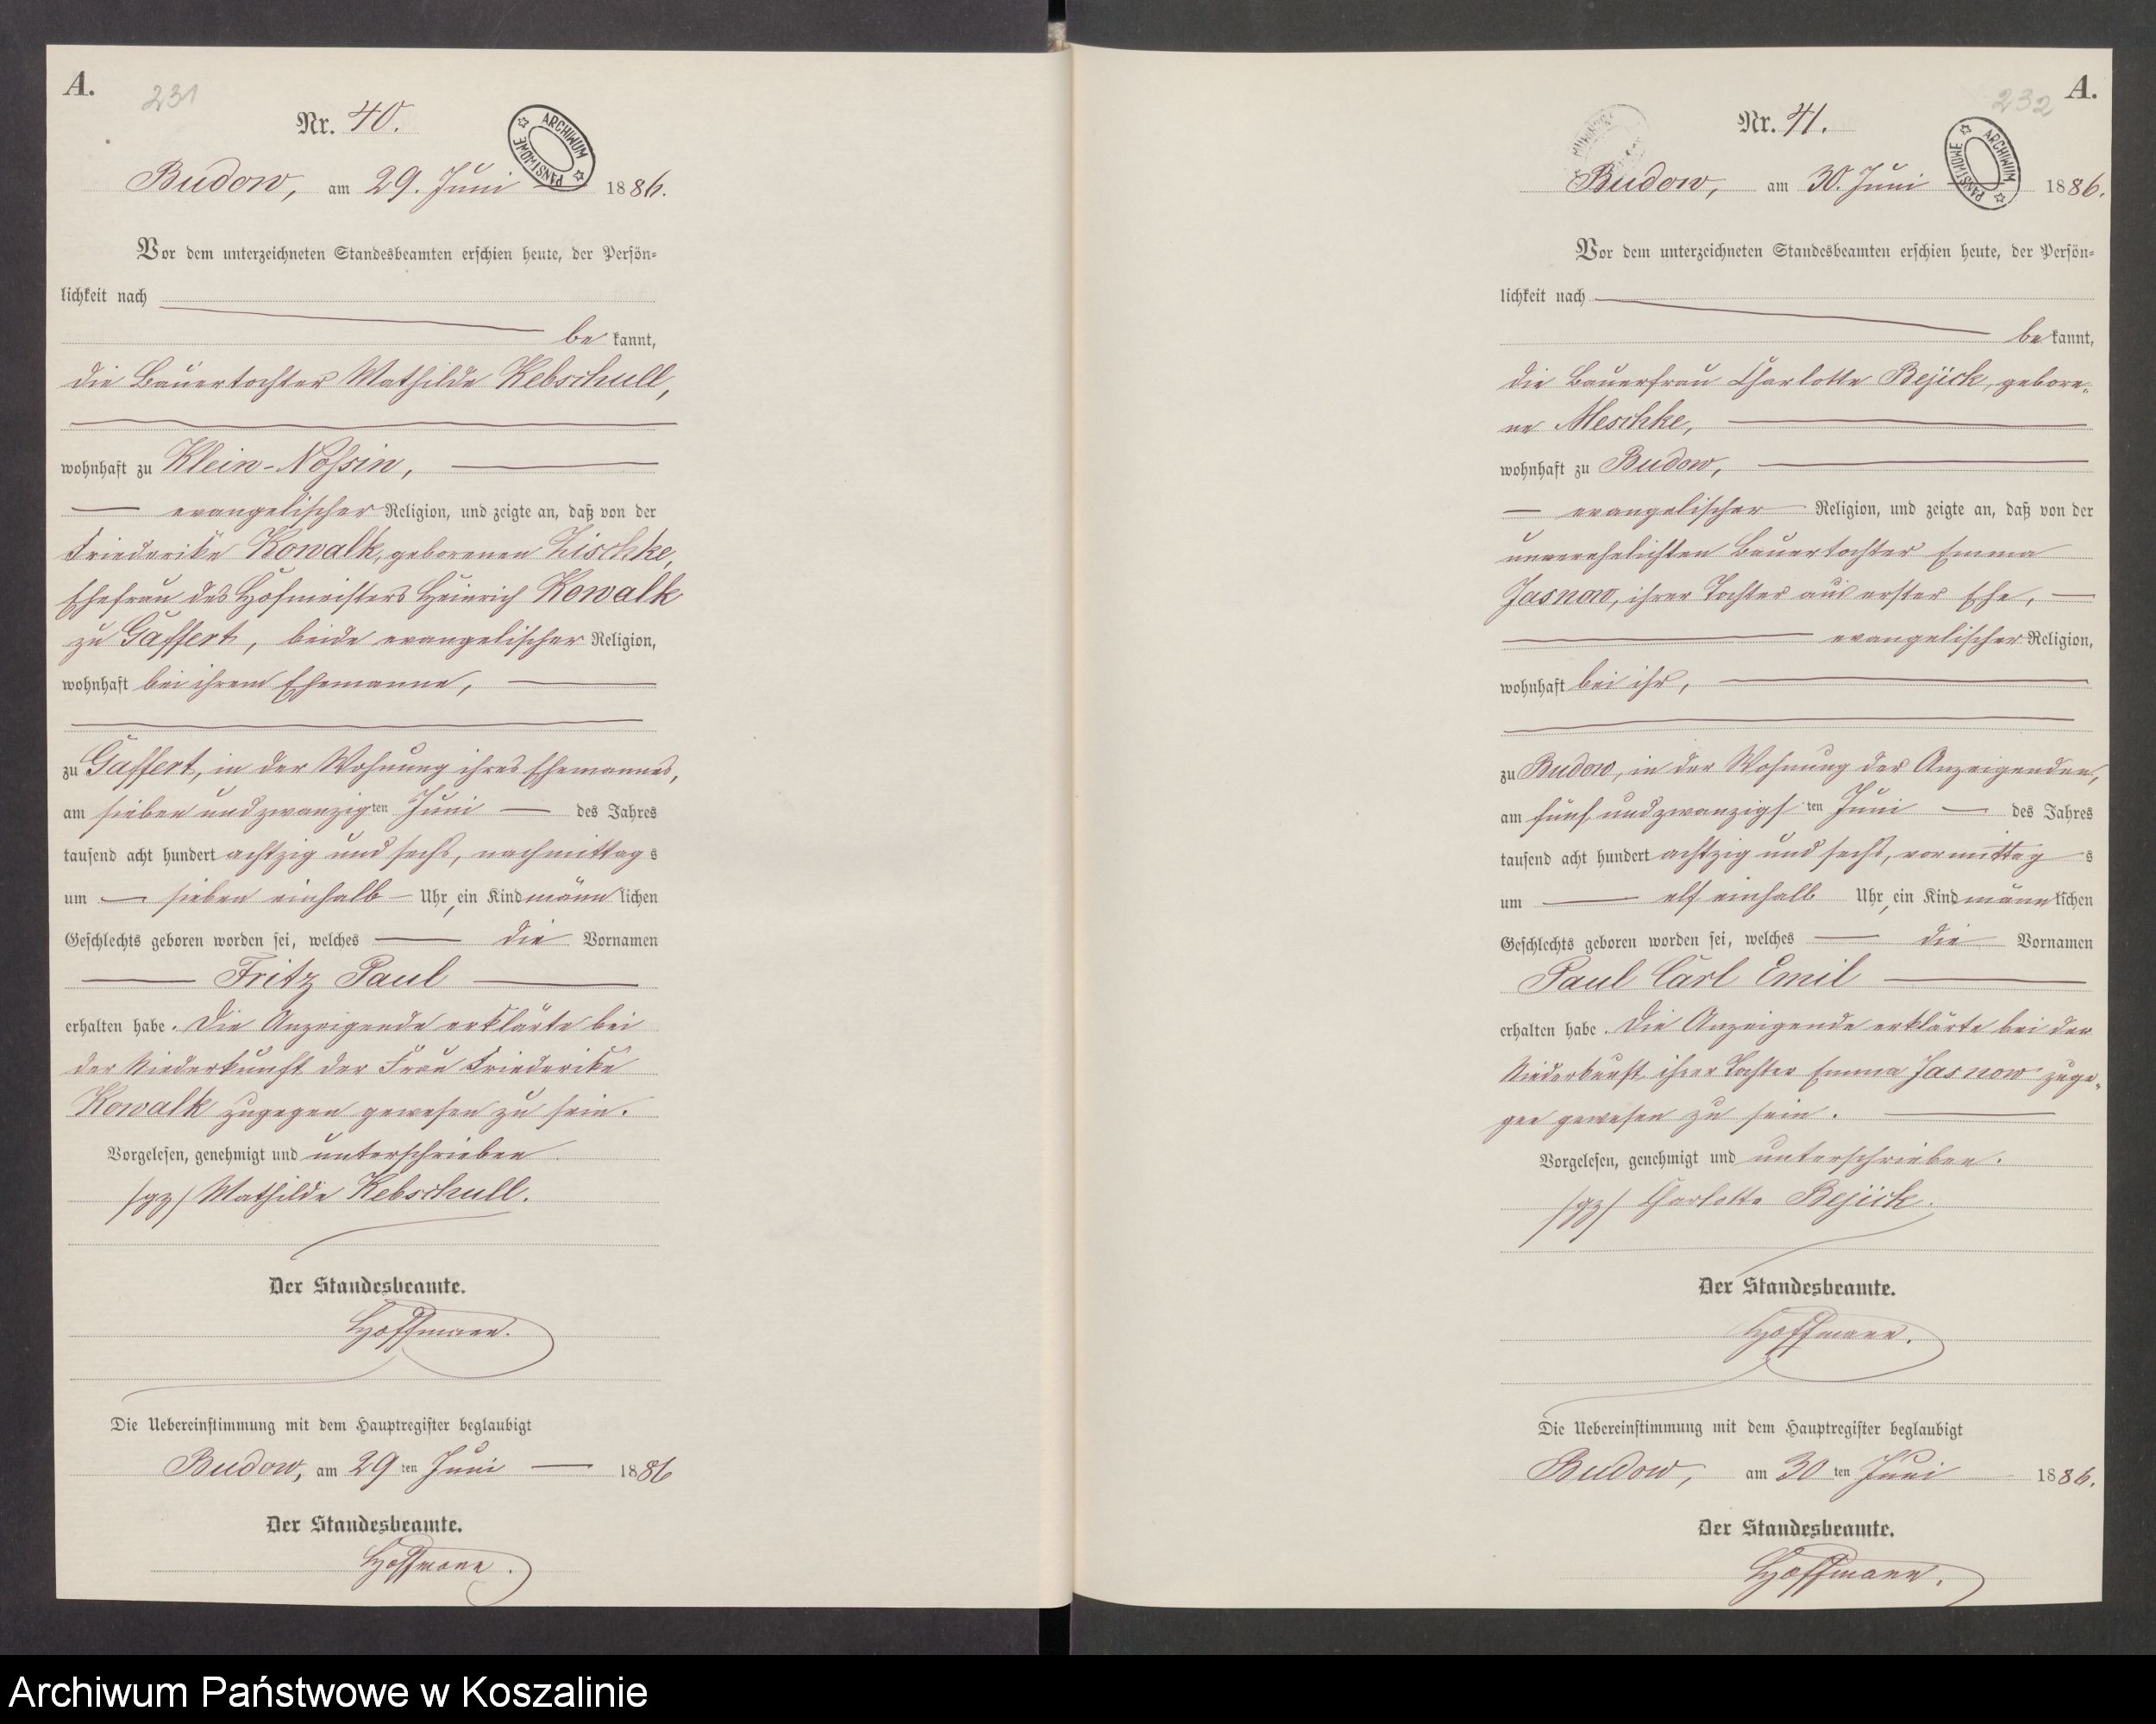 A.
231
Nr. 40.
ARCHIWUM PAŃSTWOWE
Budow, am 29. Juni 1886.
Vor dem unterzeichneten Standesbeamten erschien heute, der Persön-
lichkeit nach
be kannt,
die Bauertochter Mathilde Kebschull,
wohnhaft zu Klein-Nossin,
evangelischer Religion, und zeigte an, daß von der
Friederike Kowalk, geborenen Zischke,
Ehefrau des Hofmeisters Heinrich Kowalk
zu Gaffert, beide evangelischer Religion,
wohnhaft bei ihrem Ehemanne,
zu Gaffert, in der Wohnung ihres Ehemannes,
am sieben und zwanzigten Juni des Jahres
tausend acht hundert achtzig und sechs, nachmittags
um sieben einhalb Uhr, ein Kind männlichen
Geschlechts geboren worden sei, welches die Vornamen
Fritz Paul
erhalten habe. Die Anzeigende erklärte bei
der Niederkunft der Frau Friederike
Kowalk zugegen gewesen zu sein.
Vorgelesen, genehmigt und unterschrieben
/gz/ Mathilde Kebschull.
Der Standesbeamte.
Hoffmann.
Die Uebereinstimmung mit dem Hauptregister beglaubigt
Budow, am 29 ten Juni 1886
Der Standesbeamte.
Hoffmann.
A.
232
Nr. 41.
ARCHIWUM PAŃSTWOWE
Budow, am 30. Juni 1886.
Vor dem unterzeichneten Standesbeamten erschien heute, der Persön-
lichkeit nach
be kannt,
die Bauerfrau Charlotte Bejick, gebore-
ne Meschke,
wohnhaft zu Budow,
evangelischer Religion, und zeigte an, daß von der
unverehelichten Bauertochter Emma
Jasnow, ihrer Tochter aus erster Ehe,
evangelischer Religion,
wohnhaft bei ihr,
zu Budow, in der Wohnung der Anzeigenden,
am fünf und zwanzigsten Juni des Jahres
tausend acht hundert achtzig und sechs, vormittags
um elf einhalb Uhr, ein Kind männlichen
Geschlechts geboren worden sei, welches die Vornamen
Paul Carl Emil
erhalten habe. Die Anzeigende erklärte bei der
Niederkunft ihrer Tochter Emma Jasnow zuge-
gen gewesen zu sein.
Vorgelesen, genehmigt und unterschrieben.
/gz/ Charlotte Bejick.
Der Standesbeamte.
Hoffmann.
Die Uebereinstimmung mit dem Hauptregister beglaubigt
Budow, am 30 ten Juni 1886.
Der Standesbeamte.
Hoffmann.
Archiwum Państwowe w Koszalinie